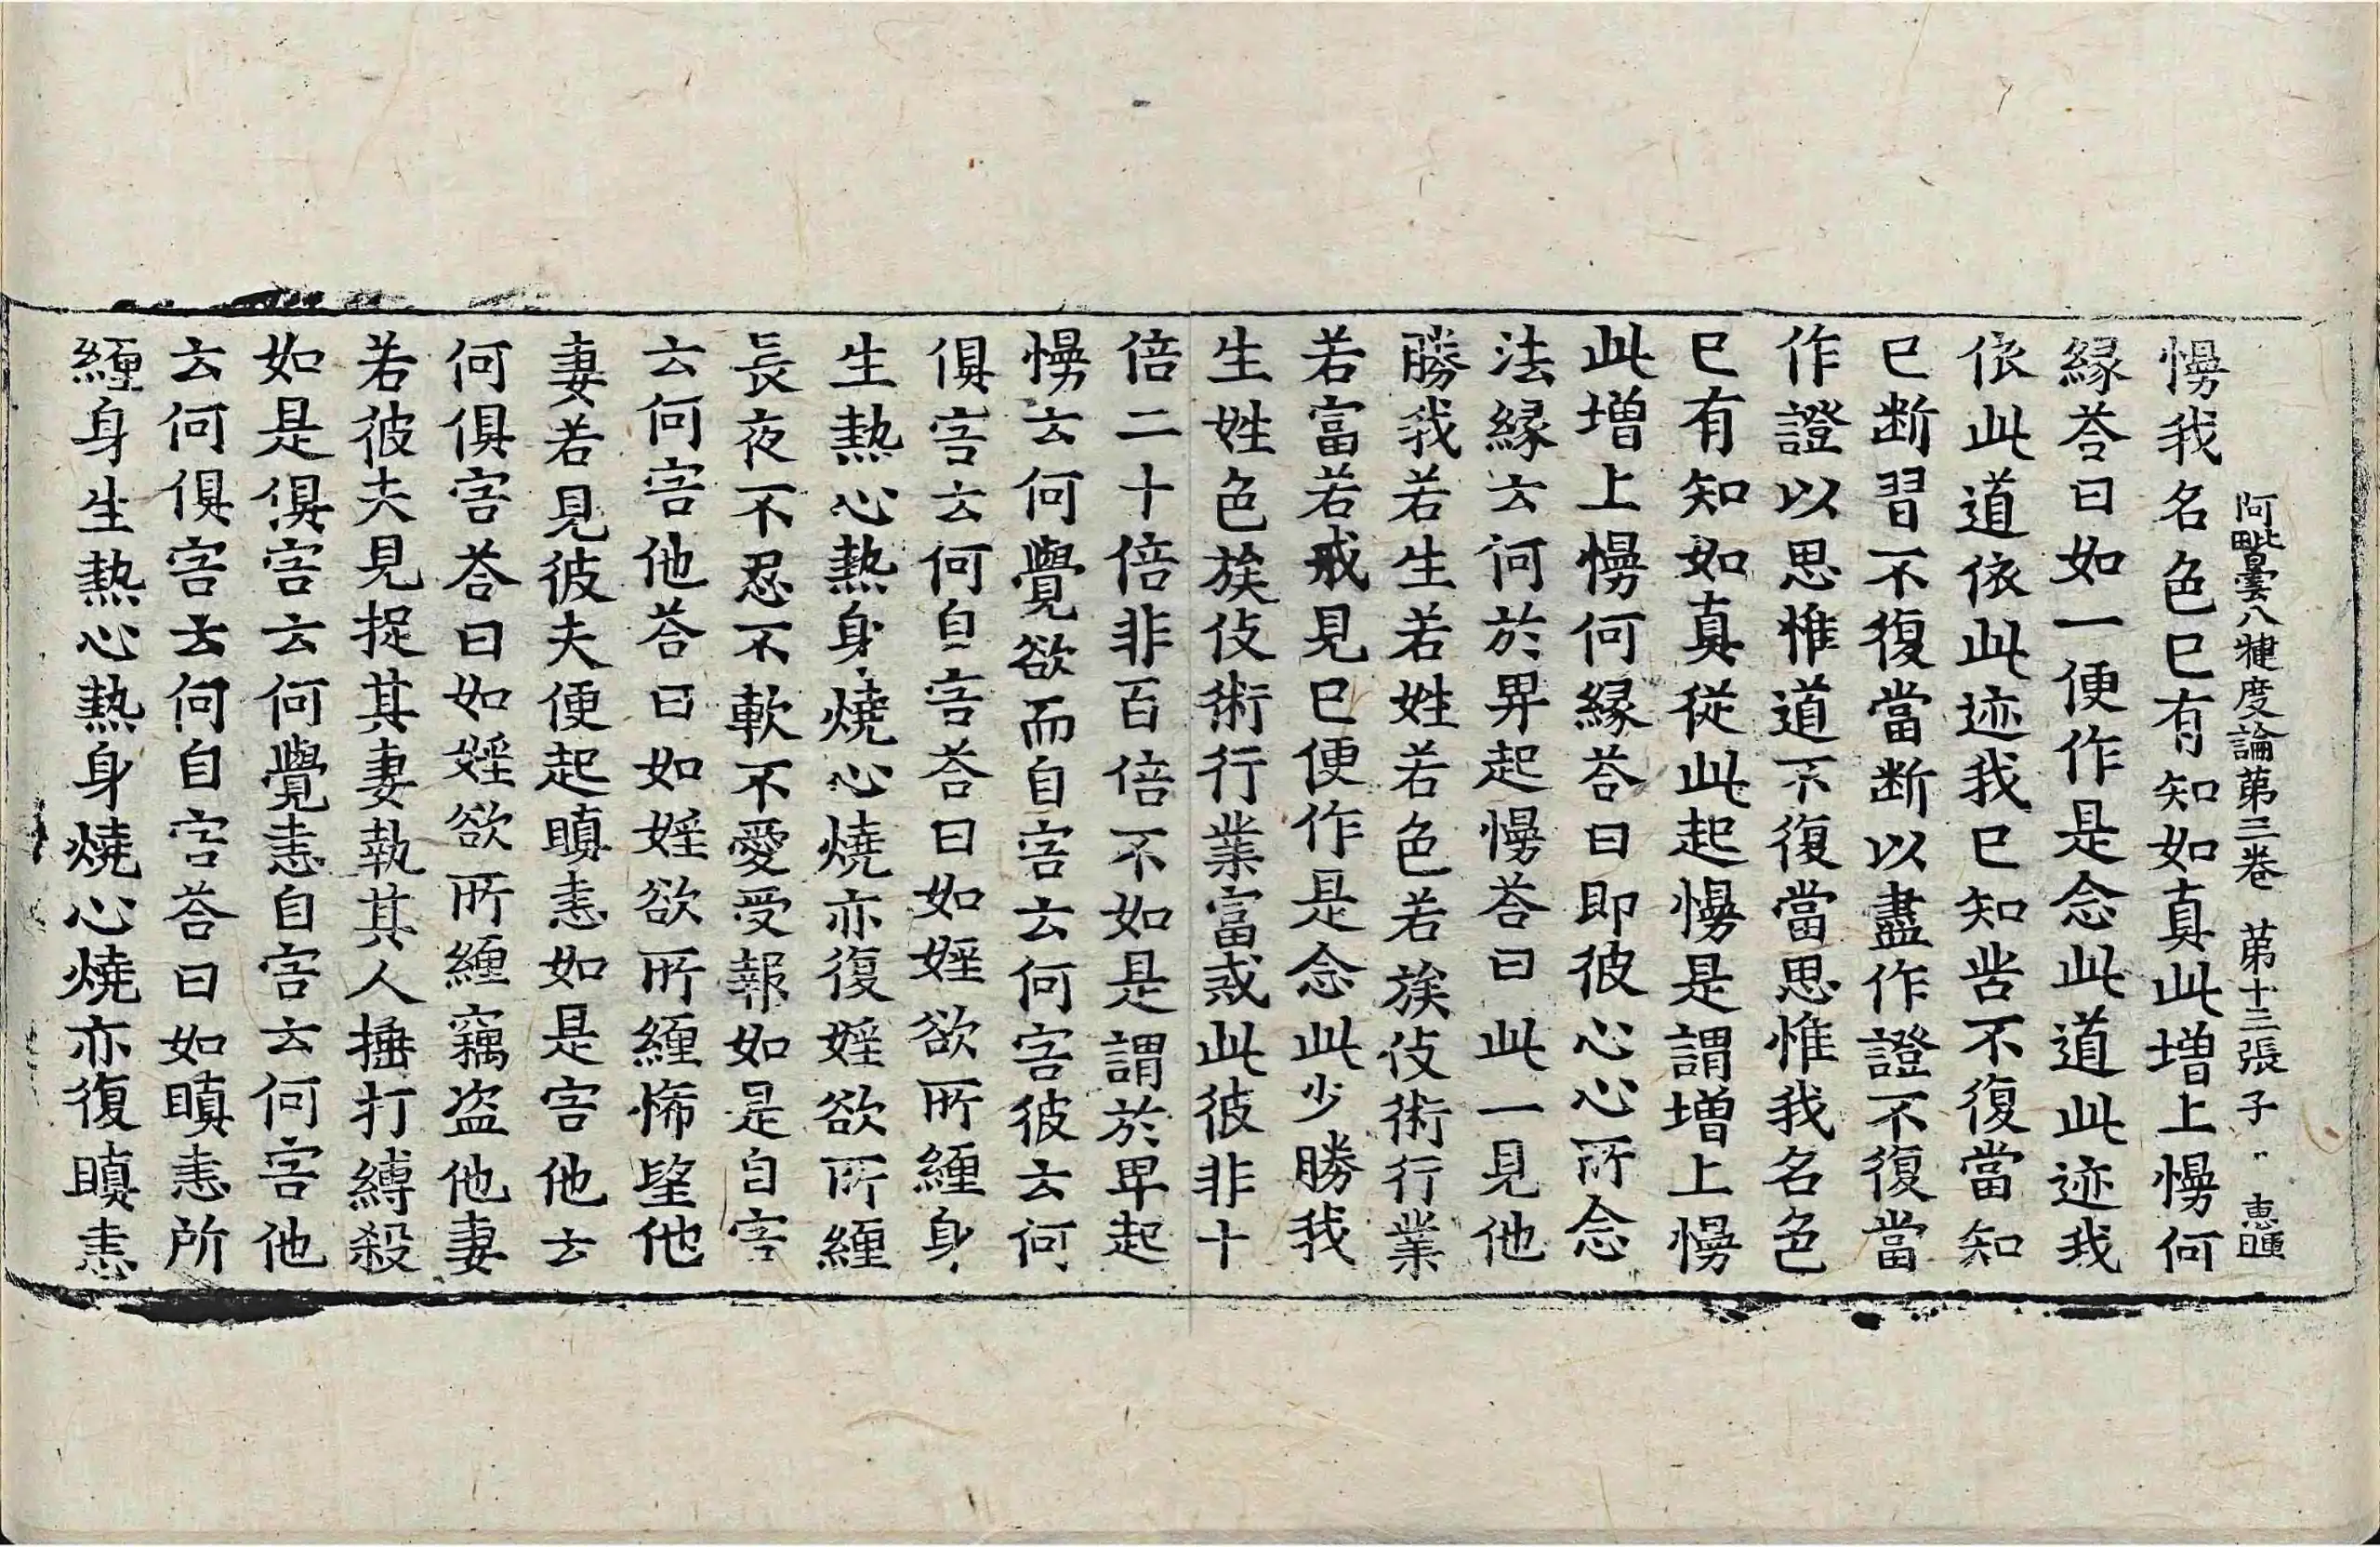 阿毗曇八犍度論第三卷　第十三張　子　惠𣌾
慢我名色已有知如真此增上慢何
緣荅曰如一便作是念此道此迹我
依此道依此迹我已知苦不復當知
已断習不復當断以盡作證不復當
作證以思惟道不復當思惟我名色
已有知如真從此起慢是謂增上慢
此增上慢何緣荅曰即彼心心所念
法緣云何於卑起慢荅曰此一見他
勝我若生若姓若色若族伎術行業
若富若戒見已便作是念此少勝我
生姓色族伎術行業富或此彼非十
倍二十倍非百倍不如是謂於卑起
慢云何覺欲而自害云何害彼云何
俱害云何自害荅曰如婬欲所纏身
生熱心熱身燒心燒亦復婬欲所纏
長夜不忍不軟不愛受報如是自害
云何害他荅曰如婬欲所纏悕望他
妻若見彼夫便起瞋恚如是害他云
何俱害荅曰如婬欲所纏竊盗他妻
若彼夫見捉其妻執其人捶打縛殺
如是俱害云何覺恚自害云何害他
云何俱害云何自害荅曰如瞋恚所
纏身生熱心熱身燒心燒亦復瞋恚